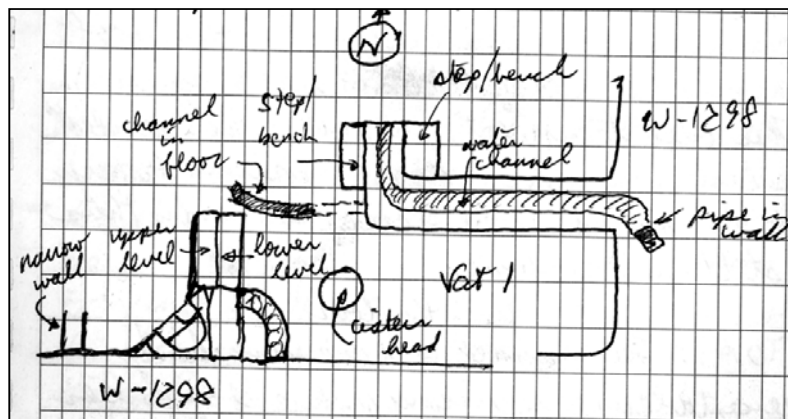 N
step/bench
step/
bench
W-1298
channel
in
floor
water
channel
pipe in
wall
narrow
wall
upper
level
lower
level
Vat 1
cistern
head
W-1298